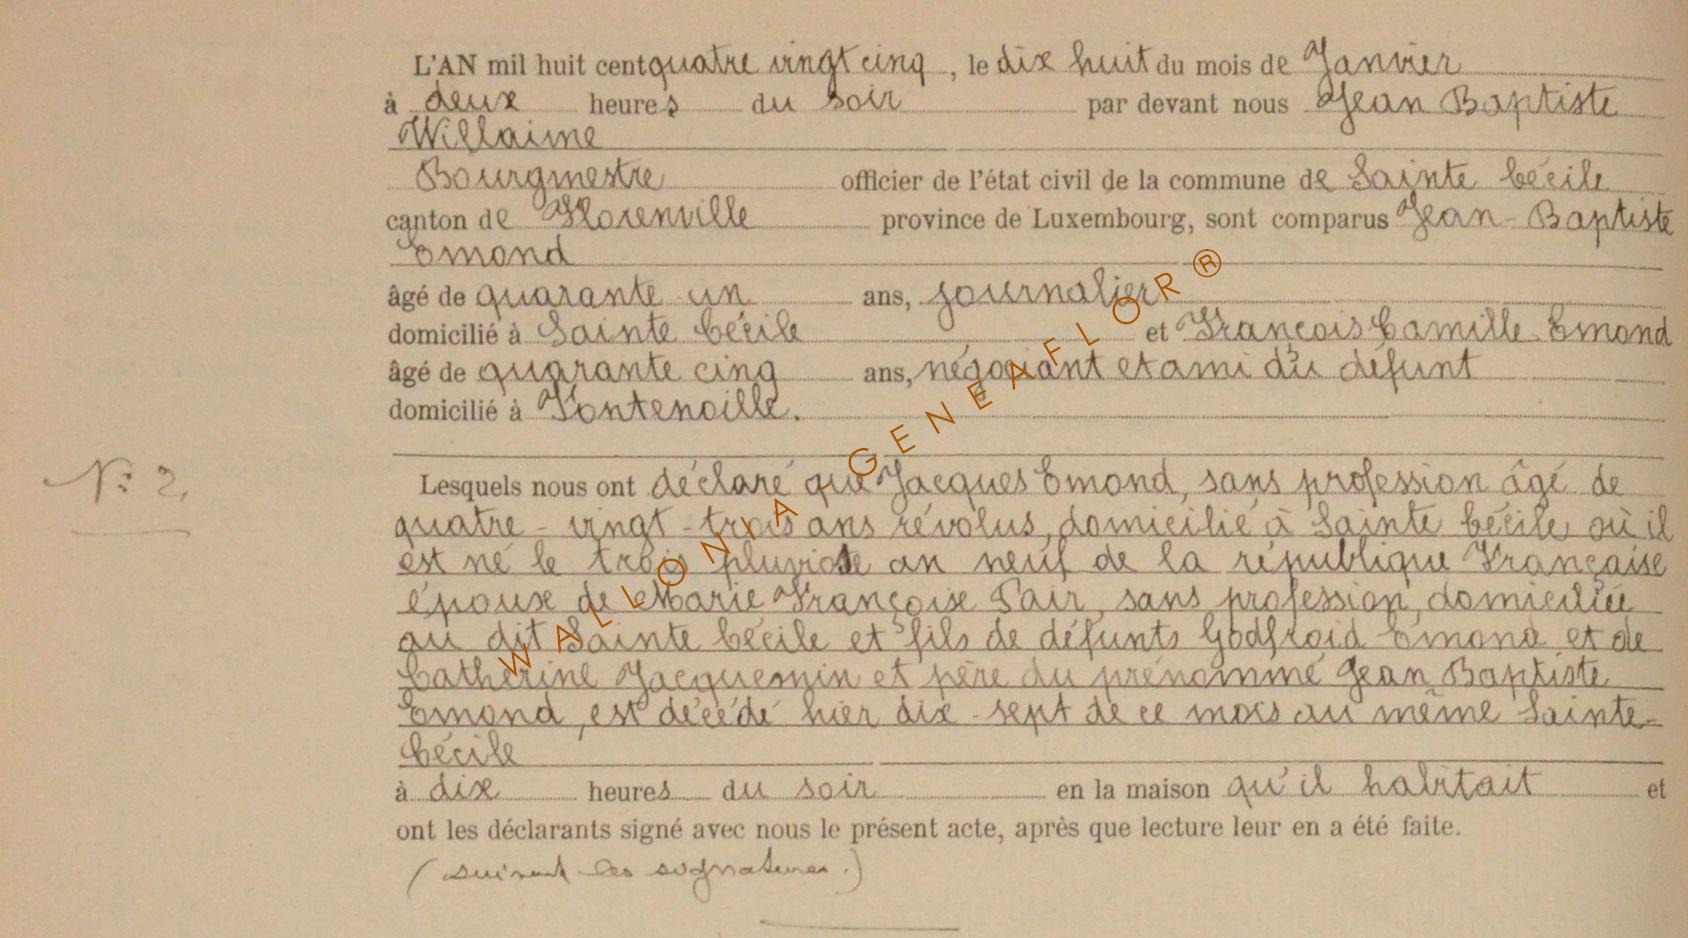 L'AN mil huit cent quatre vingt cinq, le dix huit du mois de Janvier
à deux heures du soir par devant nous Jean Baptiste
Willaime
Bourgmestre officier de l'état civil de la commune de Sainte Cécile
canton de Florenville province de Luxembourg, sont comparus Jean-Baptiste
Emond
âgé de quarante un ans, journalier
domicilié à Sainte Cécile et François Camille Emond
âgé de quarante cinq ans, négociant et ami du défunt
domicilié à Fontenoille.
N° 2.
Lesquels nous ont déclaré que Jacques Emond, sans profession âgé de
quatre-vingt-trois ans révolus, domicilié à Sainte Cécile où il
est né le trois pluviose an neuf de la république Française
époux de Marie Françoise Pair, sans profession, domiciliée
au dit Sainte Cécile et fils de défunts Godfroid Emond et de
Catherine Jacquemin et père du prénommé Jean Baptiste
Emond, est décédé hier dix-sept de ce mois au même Sainte-
Cécile
à dix heures du soir en la maison qu'il habitait et
ont les déclarants signé avec nous le présent acte, après que lecture leur en a été faite.
(suivent les signatures.)
WALLONIA-GENEAFLOR®